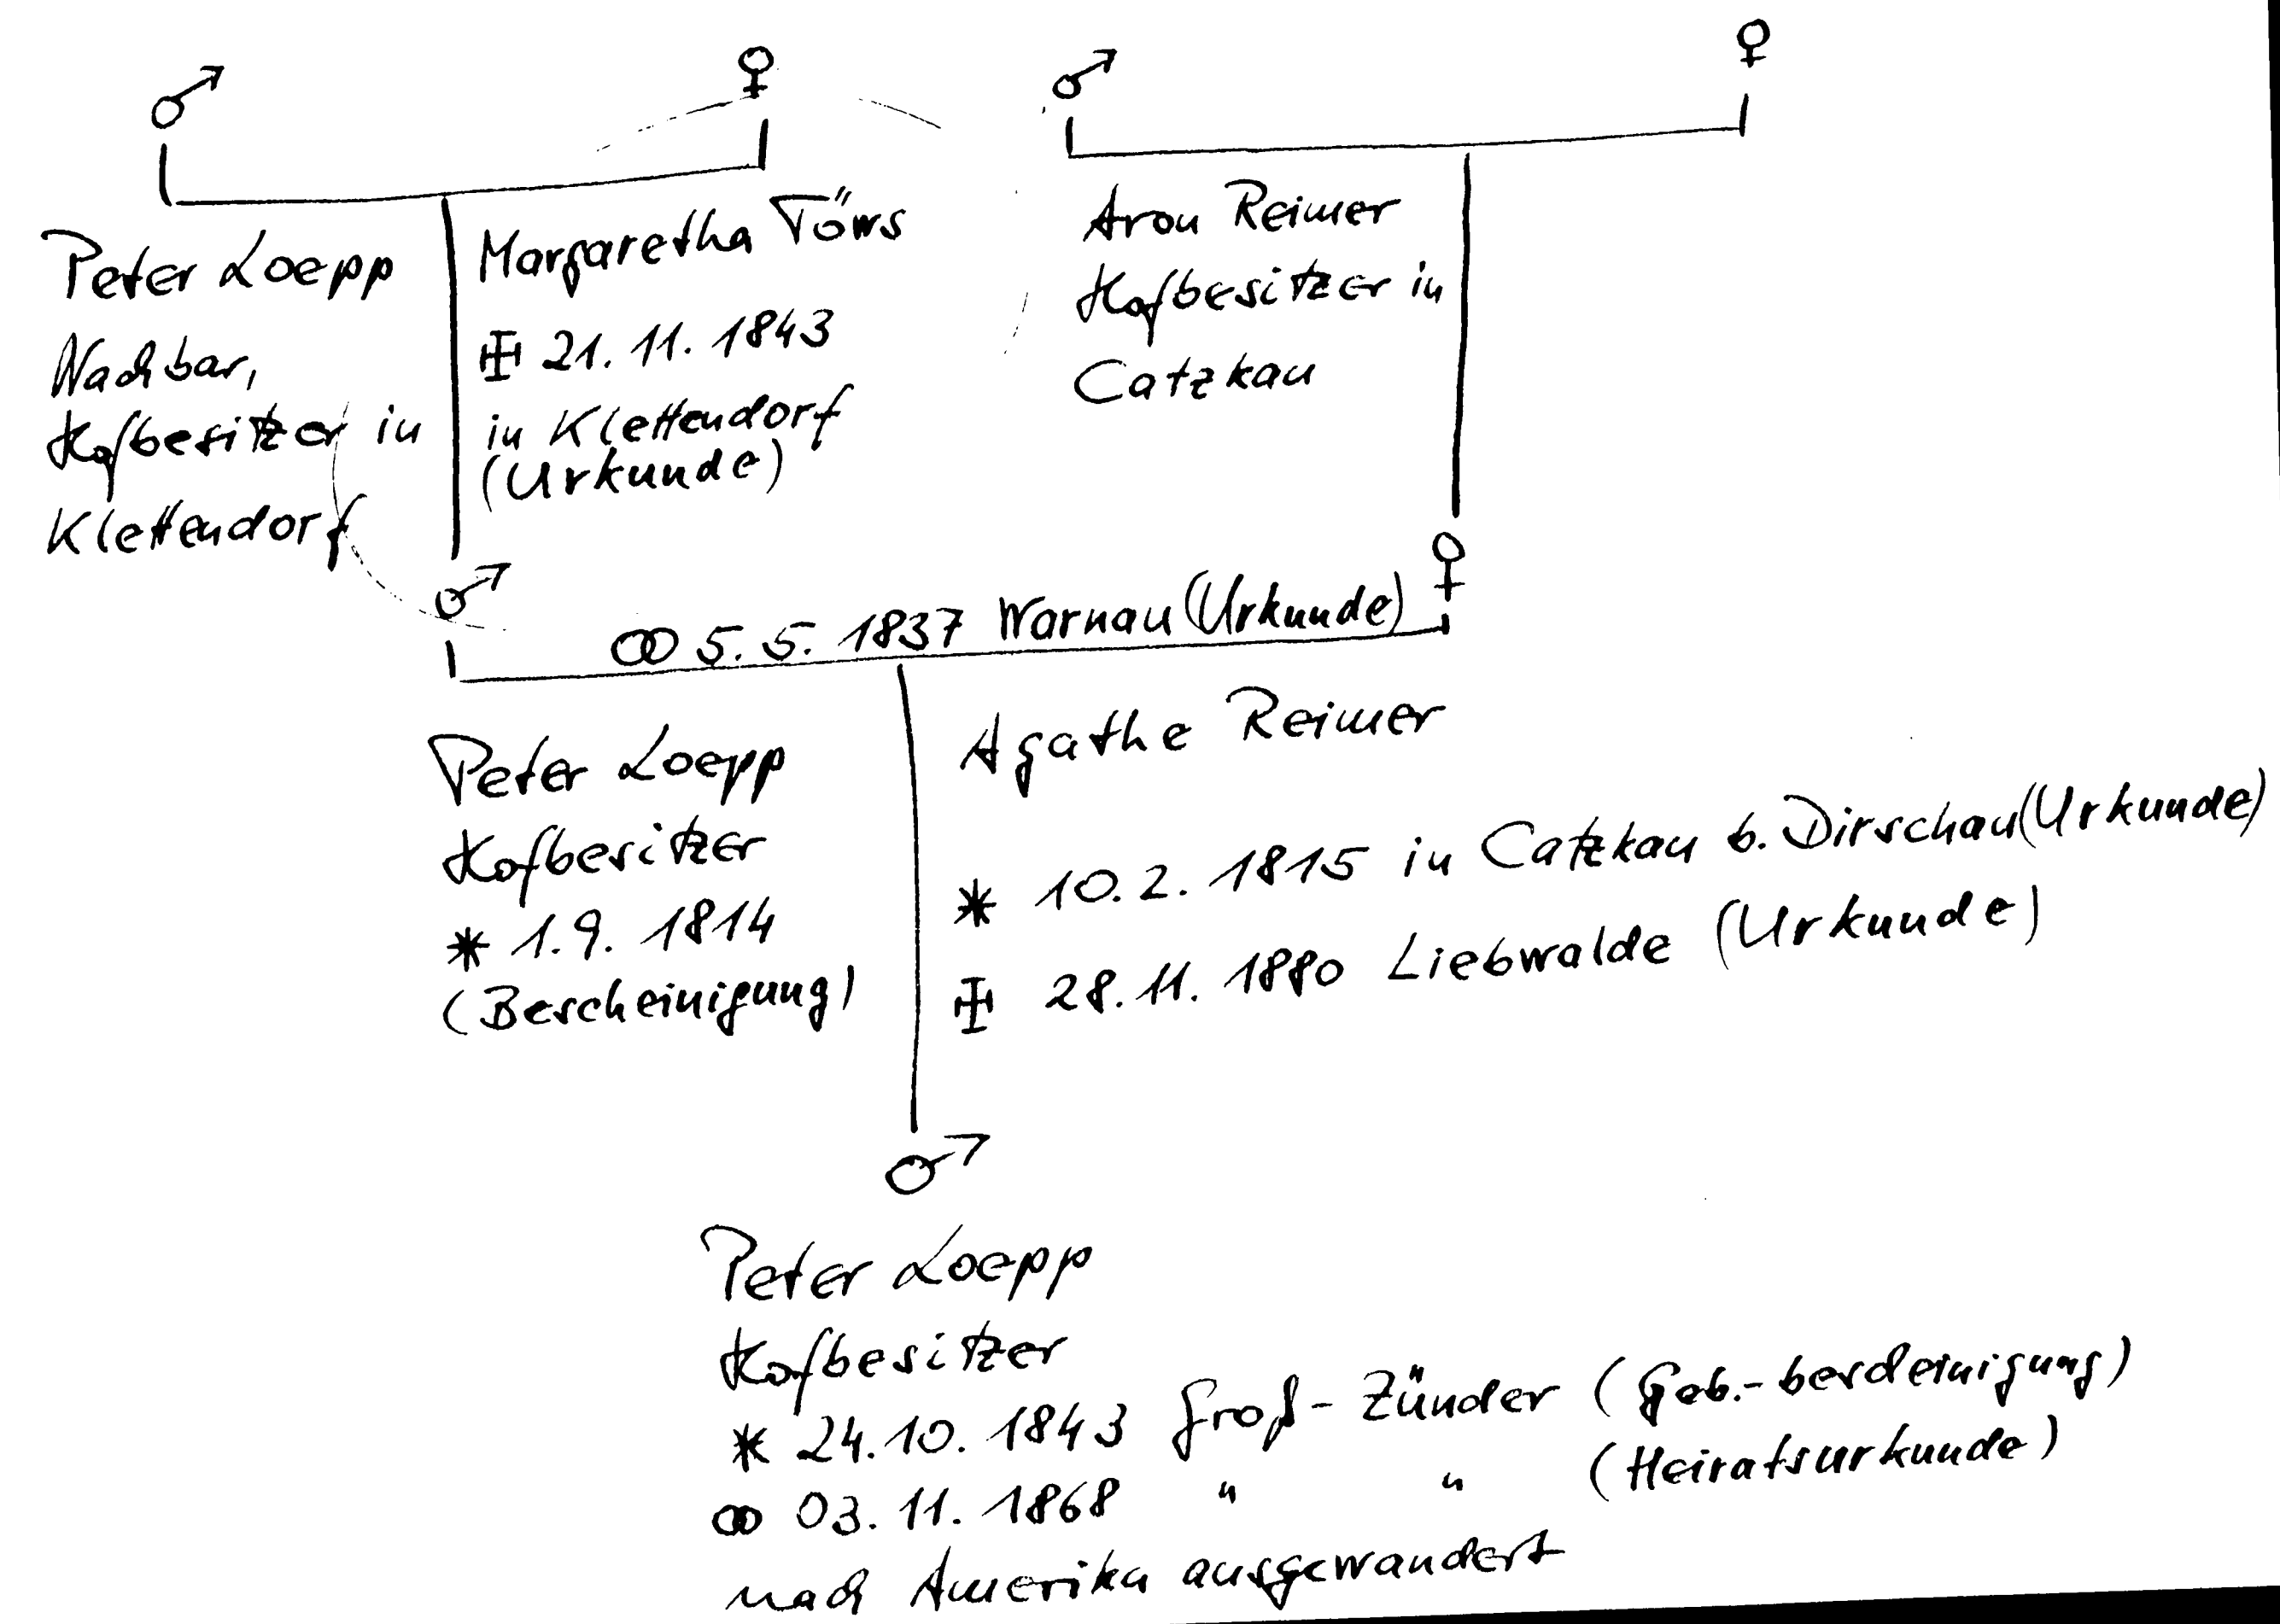 ♂ ♀ ♂ ♀
Peter Loepp
Nachbar,
Hofbesitzer in
Klettendorf
Margaretha Töws
21. 11. 1843
in Klettendorf
(Urkunde)
Aron Reimer
Hofbesitzer in
Catzkau
♂ ♀
⚭ 5. 5. 1837 Warnau (Urkunde)
Peter Loepp
Hofbesitzer
* 1. 9. 1814
(Bescheinigung)
Agathe Reimer
* 10. 2. 1815 in Catzkau b. Dirschau (Urkunde)
28. 11. 1880 Liebwalde (Urkunde)
♂
Peter Loepp
Hofbesitzer
* 24. 10. 1843 Groß-Zünder (Geb.-bescheinigung)
⚭ 03. 11. 1868 " " (Heiratsurkunde)
nach Amerika ausgewandert